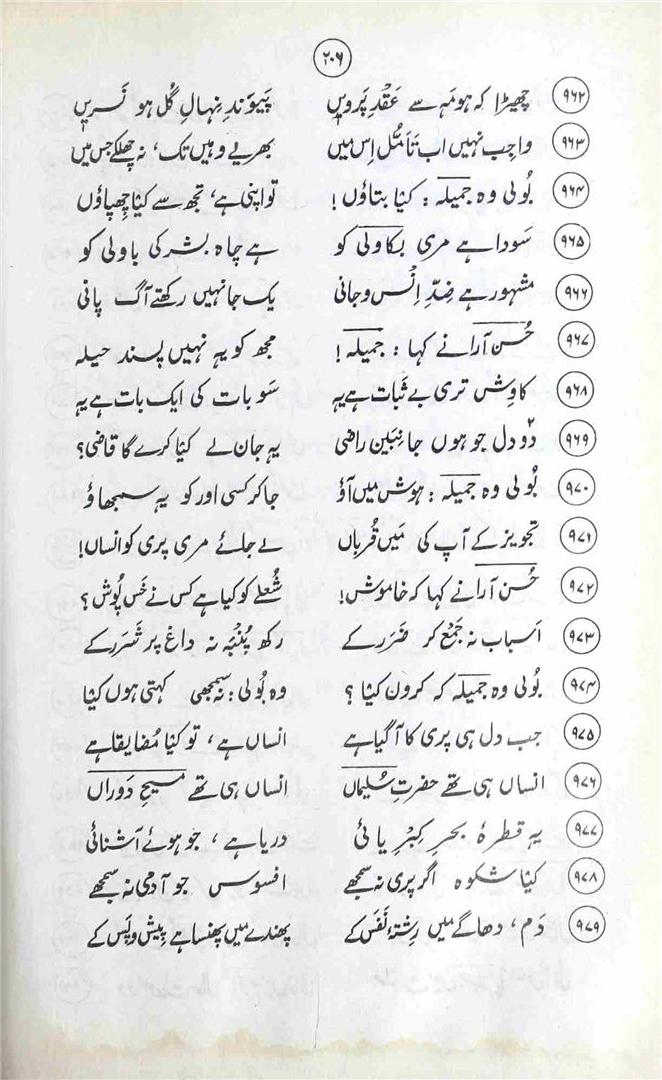 ۲۰۶
۹۶۲ چھیڑا کہ ہو مَہ سے عَقدِ پَرویں پَیوَندِ نِہالِ گُل ہو نَسریں
۹۶۳ واجب نہیں اب تَاَمُّل اِس میں بھریے وہیں تک، نہ چھلکے جس میں
۹۶۴ بُولی وہ جمیلہ: کیا بتاؤں! تو اپنی ہے، تجھ سے کیا چھپاؤں
۹۶۵ سَودا ہے مری بکاولی کو ہے چاہ بشر کی باولی کو
۹۶۶ مشہور ہے ضِدِّ اِنس و جانی یک جا نہیں رکھتے آگ پانی
۹۶۷ حُسن آرا نے کہا: جمیلہ! مجھ کو یہ نہیں پسند حیلہ
۹۶۸ کاوِش تری بے ثَبات ہے یہ سَو بات کی ایک بات ہے یہ
۹۶۹ دو دل جو ہوں جانِبین راضی یہ جان لے کیا کرے گا قاضی؟
۹۷۰ بُولی وہ جمیلہ: ہوش میں آؤ جا کر کسی اور کو یہ سمجھاؤ
۹۷۱ تجویز کے آپ کی مَیں قُرباں لے جائے مری پری کو انساں!
۹۷۲ حُسن آرا نے کہا کہ خاموش! شُعلے کو کیا ہے کس نے خَس پُوش؟
۹۷۳ اَسباب نہ جَمْع کر ضَرَر کے رکھ پُنْبَہ نہ داغ پر شَرَر کے
۹۷۴ بُولی وہ جمیلہ کہ کروں کیا؟ وہ بُولی: نہ سمجھی کہتی ہوں کیا
۹۷۵ جب دل ہی پری کا آ گیا ہے انساں ہے، تو کیا مُضایقا ہے
۹۷۶ انساں ہی تھے حضرتِ سُلیماں انساں ہی تھے مسیحِ دَوراں
۹۷۷ یہ قطرۂ بحرِ کِبْرِیائی دریا ہے، جو ہوئے آشنائی
۹۷۸ کیا شکوہ اگر پری نہ سمجھے افسوس جو آدمی نہ سمجھے
۹۷۹ دَم، دھاگے میں رِشتۂ نَفَس کے پھندے میں پھنسا ہے پیش و پَس کے